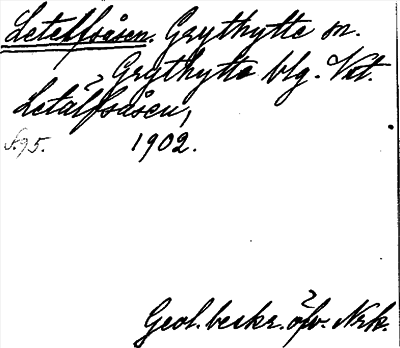 Letälfsåsen. Grythytte sn.
Grythytte blg. Vstm.
Letälfsåsen,
S. 95. 1902.
Geol. beskr. öfv. Nrk.